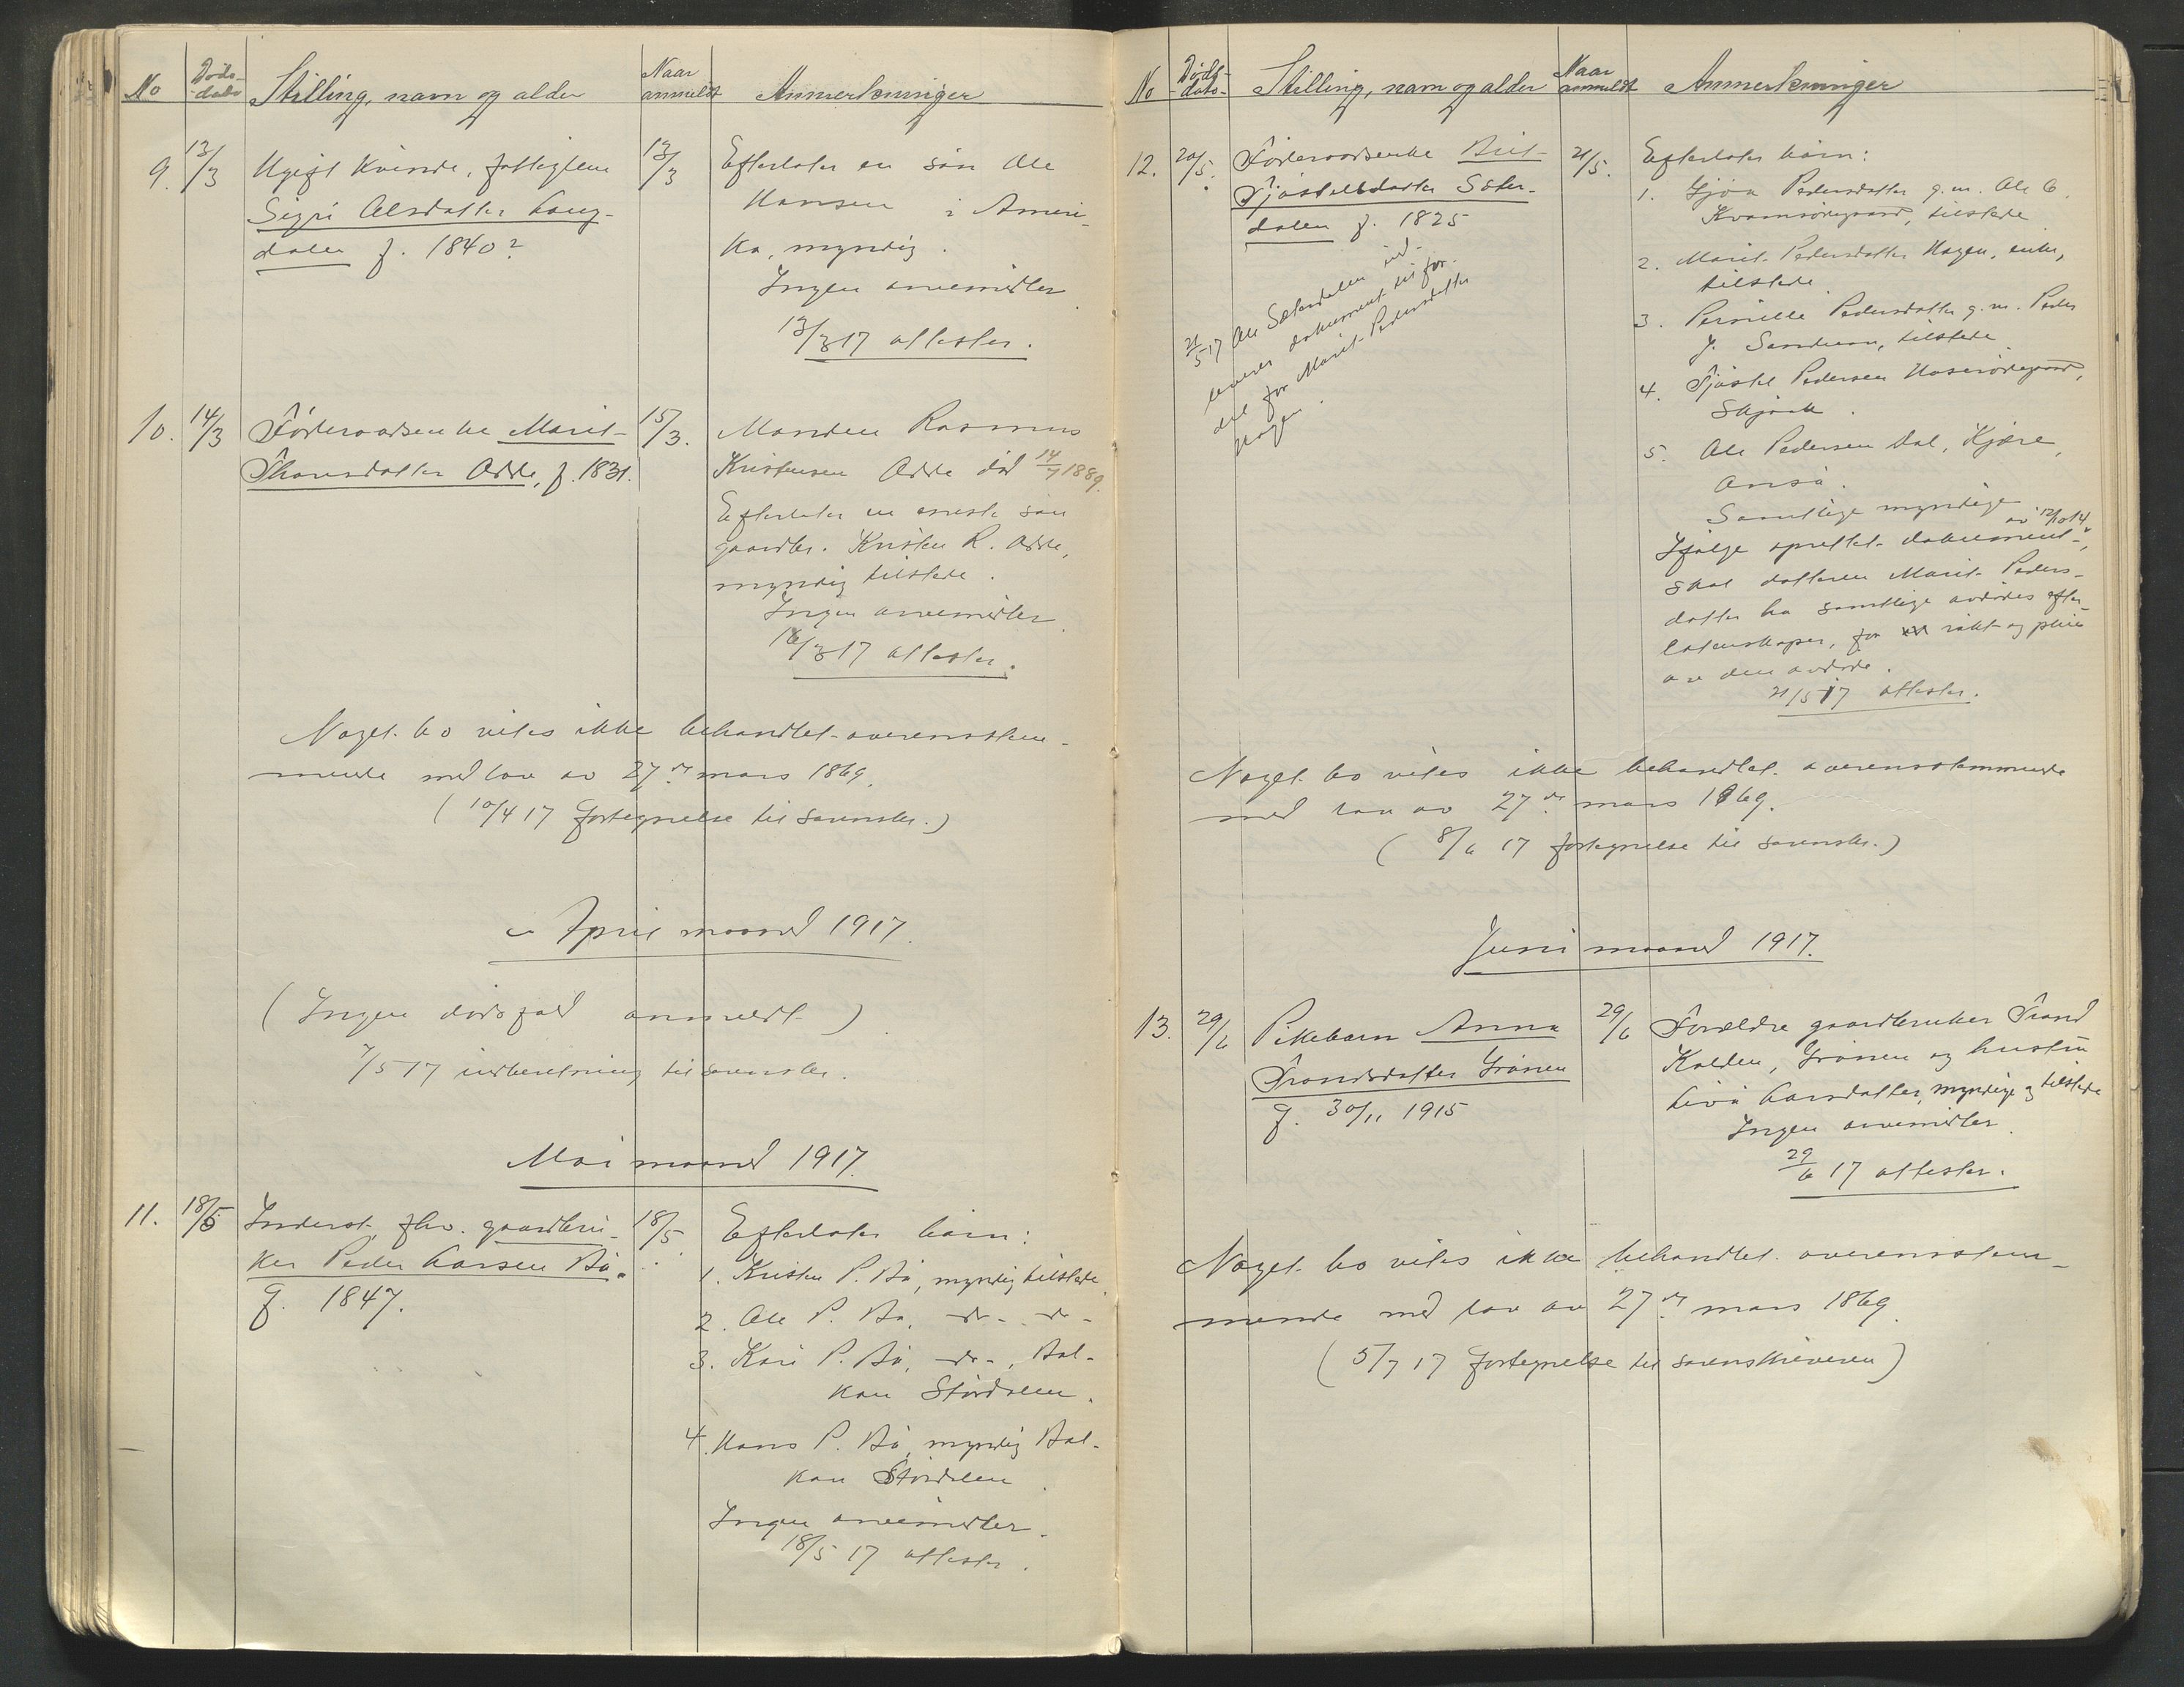 No Døds-dato Stilling, navn og alder Naar anmeldt Anmerkninger
9. 13/3 Ugift kvinde, fattiglem 13/3 Efterlater en søn Ole
Sigri Olsdatter Lang- Hansen i Ameri-
dalen f. 1840? ka, myndig.
Ingen arvemidler.
13/3 17 attester.
10. 14/3 Føderaadsenke Marit 15/3. Manden Rasmus
Thorsdatter Odde, f. 1831. Kristensen Odde død 14/7 1889.
Efterlater en eneste søn
gaardbr. Kristen R. Odde,
myndig tilstede.
Ingen arvemidler.
16/3 17 attester.
Noget bo vites ikke behandlet overensstem-
mende med lov av 27de mars 1869.
(10/4 17 fortegnelse til sorenskr.)
April maaned 1917.
(Ingen dødsfald anmeldt)
7/5 17 indberetning til sorenskr.
Mai maaned 1917.
11. 18/5 Inderst, fhv. gaardbru- 18/5. Efterlater børn:
ker Peder Larsen Bø. 1. Kristen P. Bø, myndig tilstede
f. 1847. 2. Ole P. Bø, -do- -do-
3. Kari P. Bø, -do-, Bal-
kan Stordalen.
4. Hans P. Bø, myndig Bal-
kan Stordalen.
Ingen arvemidler.
18/5 17 attester.
No Døds-dato- Stilling, navn og alder Naar anmeldt Anmerkninger
12. 20/5. Føderaadsenke Brit 21/5. Efterlater børn:
Tjøstelsdatter Sæter-
dalen f. 1825
21/5 17 Ole Sæterdalen ind-
leverer dokument til for-
del for Marit Pedersdatter
Hagen.
1. Gjøa Pedersdatter g.m. Ole O.
Kvamsødegaard, tilstede
2. Marit Pedersdatter Hagen, enke,
tilstede
3. Pernille Pedersdatter g.m. Peder
J. Sandum, tilstede
4. Tjøstel Pedersen
Skjaak.
5. Ole Pedersen Dal, Kjøre,
Samtlige myndige
Ifølge oprettet dokument av 12/10 14,
skal datteren Marit Peders-
datter ha samtlige avdødes efter-
latenskaper, for røkt og pleie
av den avdøde.
21/5 17 attester.
Noget bo vites ikke behandlet overensstemmende
med lov av 27de mars 1869.
(8/6 17 fortegnelse til sorenskr.)
Juni maaned 1917.
13. 29/6 Pikebarn Anna 29/6 Forældre gaardbruker Trond
Trondsdatter Grønen Kolden, Grønen og hustru
f. 30/11 1915 Livø Larsdatter, myndige og tilstede
Ingen arvemidler.
29/6 17 attester.
Noget bo vites ikke behandlet overensstem-
mende med lov av 27de mars 1869.
(5/7 17 fortegnelse til sorenskriveren)